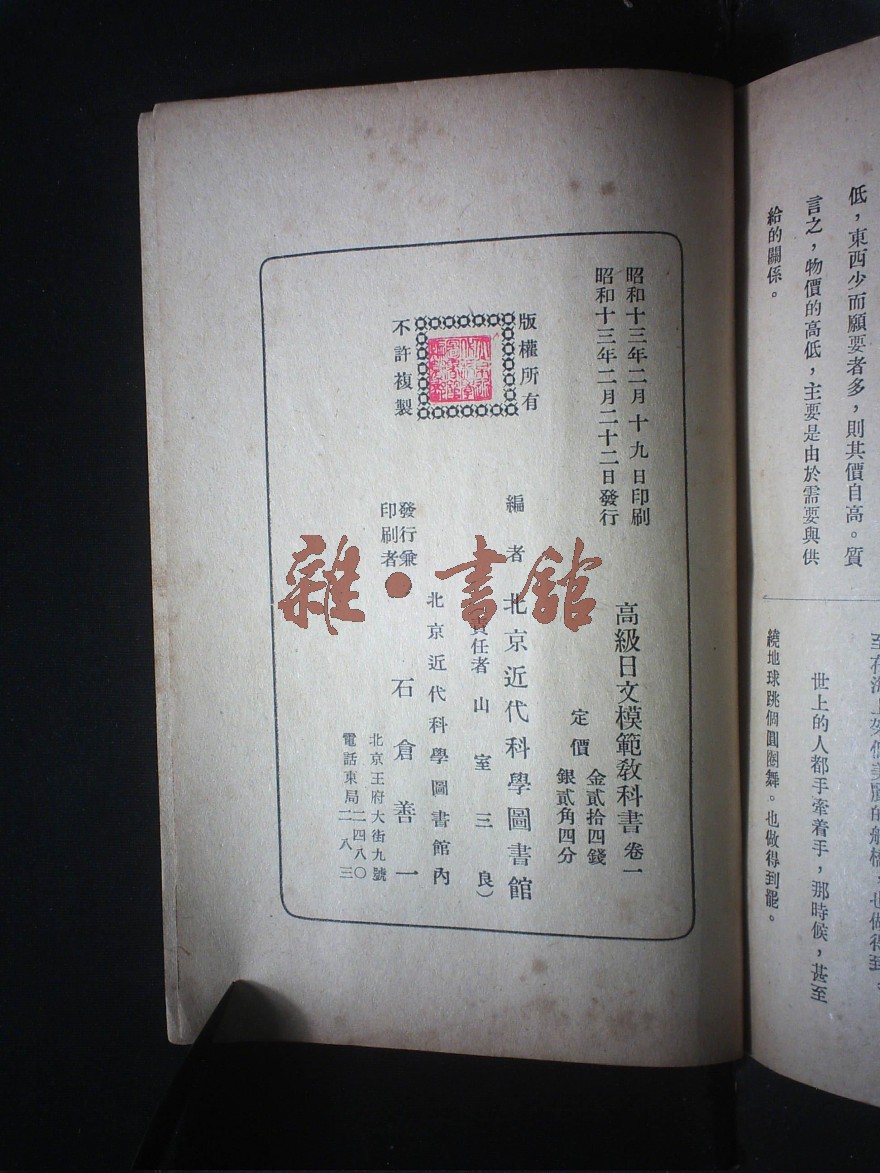 低，東西少而願要者多，則其價自高。質
言之，物價的高低，主要是由於需要與供
給的關係。
世上的人都手牽着手，那時候，甚至
繞地球跳個圓圈舞。也做得到罷。
昭和十三年二月十九日印刷
昭和十三年二月二十二日發行
高級日文模範教科書 卷一
定價
金貳拾四錢
銀貳角四分
版權所有
不許複製
編者 北京近代科學圖書館
責任者 山室三良）
發行兼
印刷者
北京近代科學圖書館內
石倉善一
北京王府大街九號
電話東局二四八〇
二八三
雜·書館